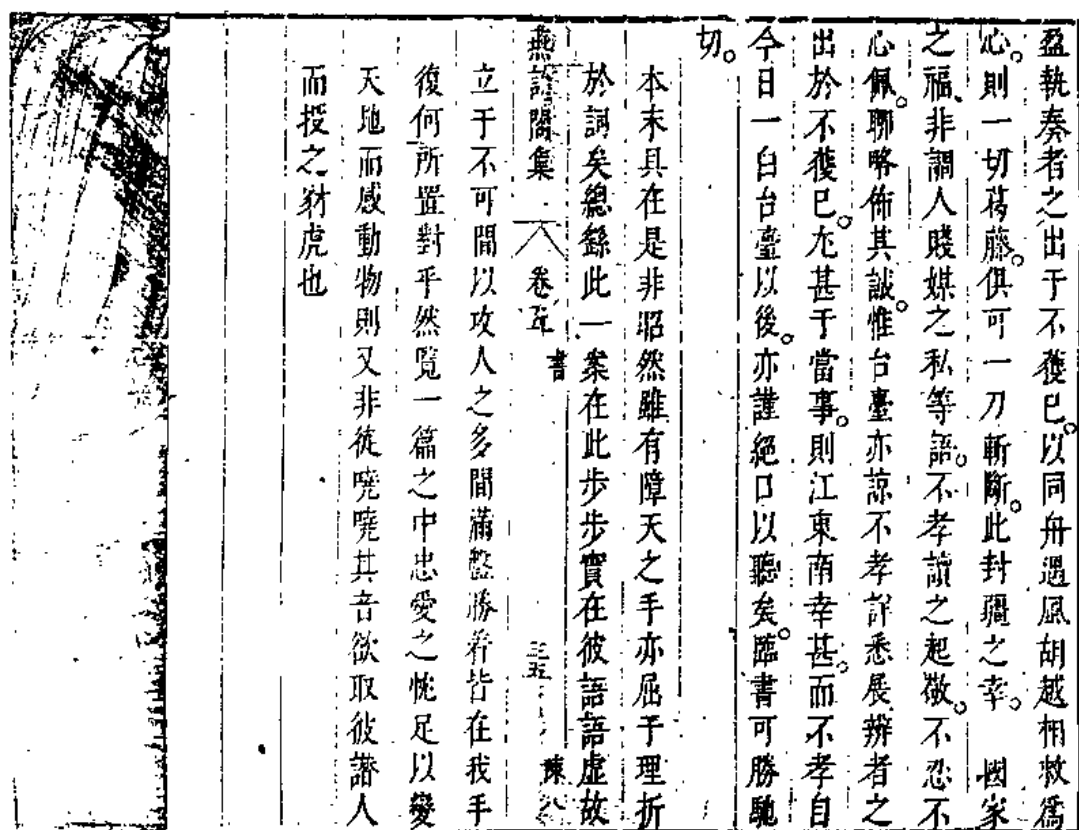 盈執奏者之出于不獲已。以同舟遇風胡越相救爲
心。則一切葛藤。俱可一刀斬斷。此封疆之幸。國家
之福、非謂人賤媒之私等語。不孝讀之起敬。不忍不
心佩。聊略佈其誠。惟台臺亦諒不孝詳悉展辨者之
出於不獲已。尤甚于當事。則江東南幸甚。而不孝自
今日一白台臺以後。亦謹絕口以聽矣。臨書可勝馳
切。
本末具在是非昭然雖有障天之手亦屈于理折
於詞矣總繇此一案在此步步實在彼語語虛故
燕詒閣集 卷五 書 三五
立于不可間以攻人之多間滿盤勝着皆在我手
復何所置對乎然覧一篇之中忠愛之忱足以變
天地而感動物則又非徒嘵嘵其音欲取彼譖人
而投之豺虎也